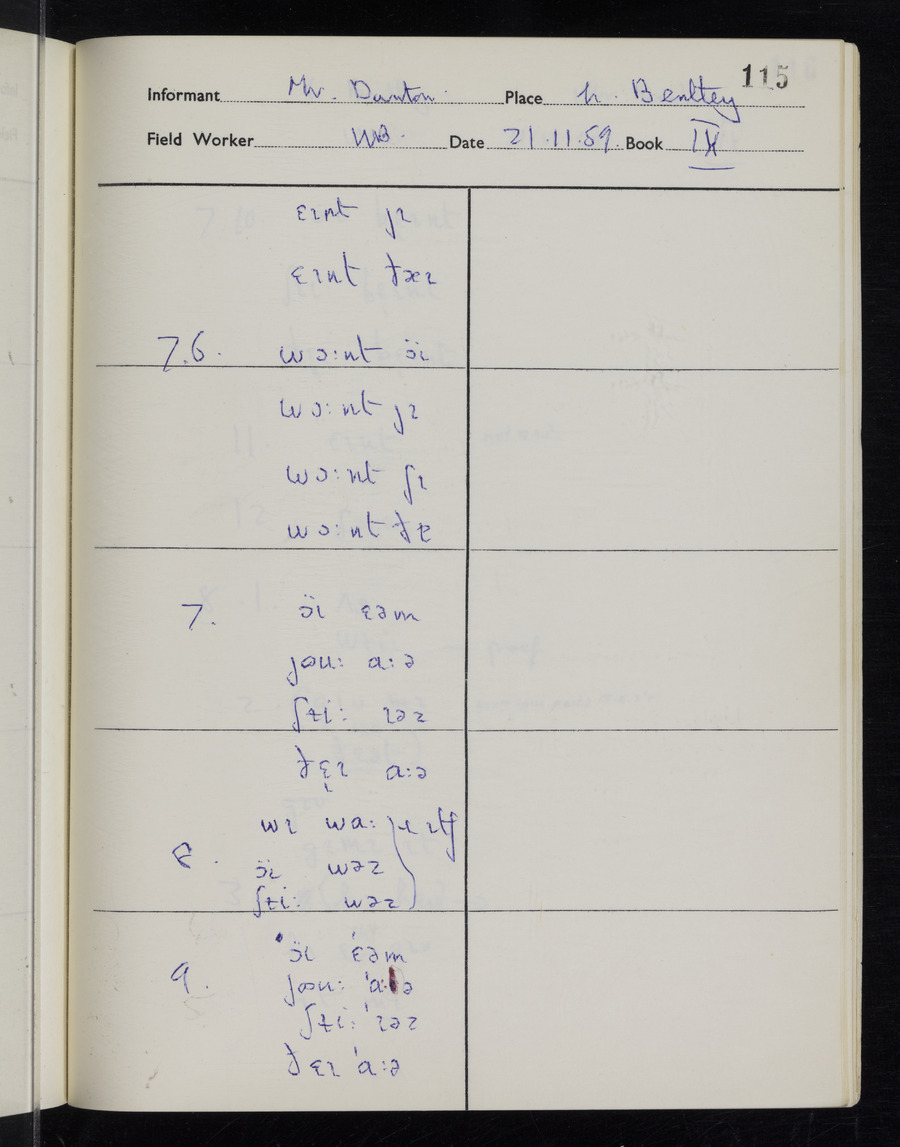 115
Informant Mr. Downton Place h. Bentley
Field Worker WB. Date 21.11.59. Book IX
ɛɪnt jɪ
ɛɪnt ðæɪ
7.6. wɔ:nt ɔ̈ɪ
wɔ:nt jɪ
wɔ:nt ʃɪ
wɔ:nt ðɐ
7. ɔ̈ɪ ɛəm
jəu: a:ə
ʃɨi: ɪəz
ðɛ̝ɪ a:ə
wɪ wa:
8. ɔ̈ɪ wəz
ʃɨi: wəz
9. ˈɔ̈ɪ ˈɛəm
jəu: ˈa:ə
ʃɨi: ˈɪəz
ðɛɪ ˈa:ə